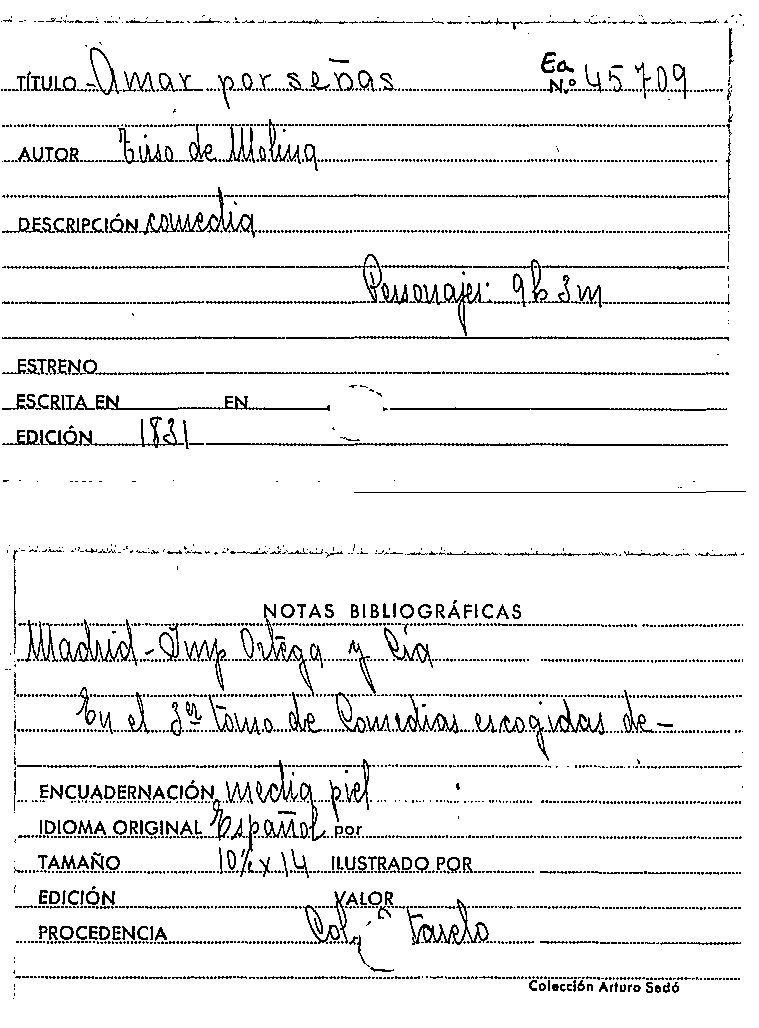 TÍTULO - Amar por señas Ea N.º 45709
AUTOR Tirso de Molina
DESCRIPCIÓN comedia
Personajes: 9h 3m
ESTRENO
ESCRITA EN EN
EDICIÓN 1831
NOTAS BIBLIOGRÁFICAS
Madrid - Imp Ortega y Cía
En el 3er tomo de Comedias escogidas de -
ENCUADERNACIÓN media piel
IDIOMA ORIGINAL Español por
TAMAÑO 10½ x 14 ILUSTRADO POR
EDICIÓN VALOR
PROCEDENCIA
Colección Arturo Sedó